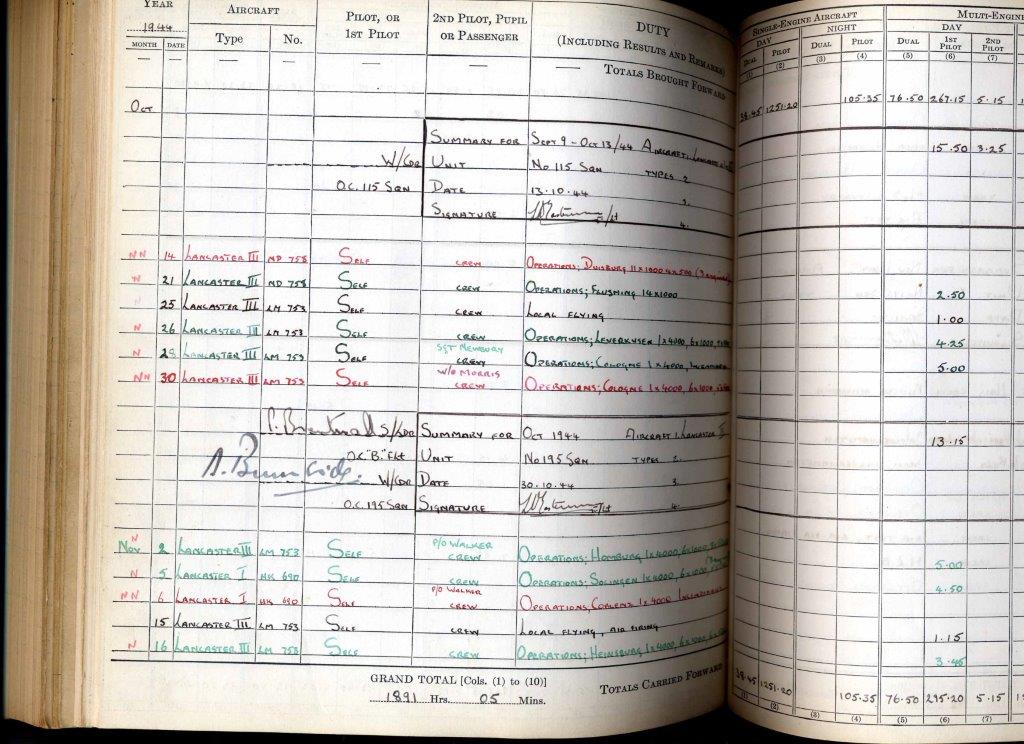 YEAR AIRCRAFT PILOT, OR 2ND PILOT, PUPIL DUTY SINGLE-ENGINE AIRCRAFT MULTI-ENGINE
1944 Type No. 1ST PILOT OR PASSENGER (INCLUDING RESULTS AND REMARKS) DAY NIGHT DAY
MONTH DATE DUAL PILOT DUAL PILOT DUAL 1ST PILOT 2ND PILOT
(1) (2) (3) (4) (5) (6) (7)
— — — — — — —
TOTALS BROUGHT FORWARD 38.45 1251.20 105.35 76.50 267.15 5.15
OCT
SUMMARY FOR SEPT 9 - OCT 13/44 AIRCRAFT 1. LANCASTER 15.50 3.25
W/CDR UNIT No 115 SQN TYPES 2
O.C. 115 SQN DATE 13.10.44 3.
SIGNATURE F/Lt 4.
NN 14 LANCASTER III ND 758 SELF CREW OPERATIONS; DUISBURG 11x1000 4x500
N 21 LANCASTER III ND 758 SELF CREW OPERATIONS; FLUSHING 14x1000 2.50
25 LANCASTER III LM 753 SELF CREW LOCAL FLYING 1.00
N 26 LANCASTER III LM 753 SELF CREW OPERATIONS; LEVERKUSEN 1x4000, 6x1000, 4.25
N 28 LANCASTER III LM 753 SELF SGT NEWBURY CREW OPERATIONS; COLOGNE 1x4000, INCENDIARIES 5.00
NN 30 LANCASTER III LM 753 SELF W/O MORRIS CREW OPERATIONS; COLOGNE 1x4000, 6x1000,
S/LDR SUMMARY FOR OCT 1944 AIRCRAFT 1. LANCASTER 13.15
O.C. "B" FLT UNIT No 195 SQN TYPES 2.
A. Burnside. W/CDR DATE 30.10.44 3.
O.C. 195 SQN SIGNATURE F/Lt 4.
NOV N 2 LANCASTER III LM 753 SELF P/O WALKER CREW OPERATIONS; HOMBURG 1x4000, 6x1000, 5.00
N 5 LANCASTER I HK 690 SELF CREW OPERATIONS; SOLINGEN 1x4000, 6x1000, 4.50
NN 6 LANCASTER I HK 690 SELF P/O WALKER CREW OPERATIONS, COBLENZ 1x4000 INCENDIARIES
15 LANCASTER III LM 753 SELF CREW LOCAL FLYING, AIR FIRING 1.15
N 16 LANCASTER III LM 753 SELF CREW OPERATIONS; HEINSBURG 1x4000, 6x1000, 3.45
GRAND TOTAL [Cols. (1) to (10)] TOTALS CARRIED FORWARD 38.45 1251.20 105.35 76.50 295.20 5.15
1891 Hrs. 05 Mins. (1) (2) (3) (4) (5) (6) (7)